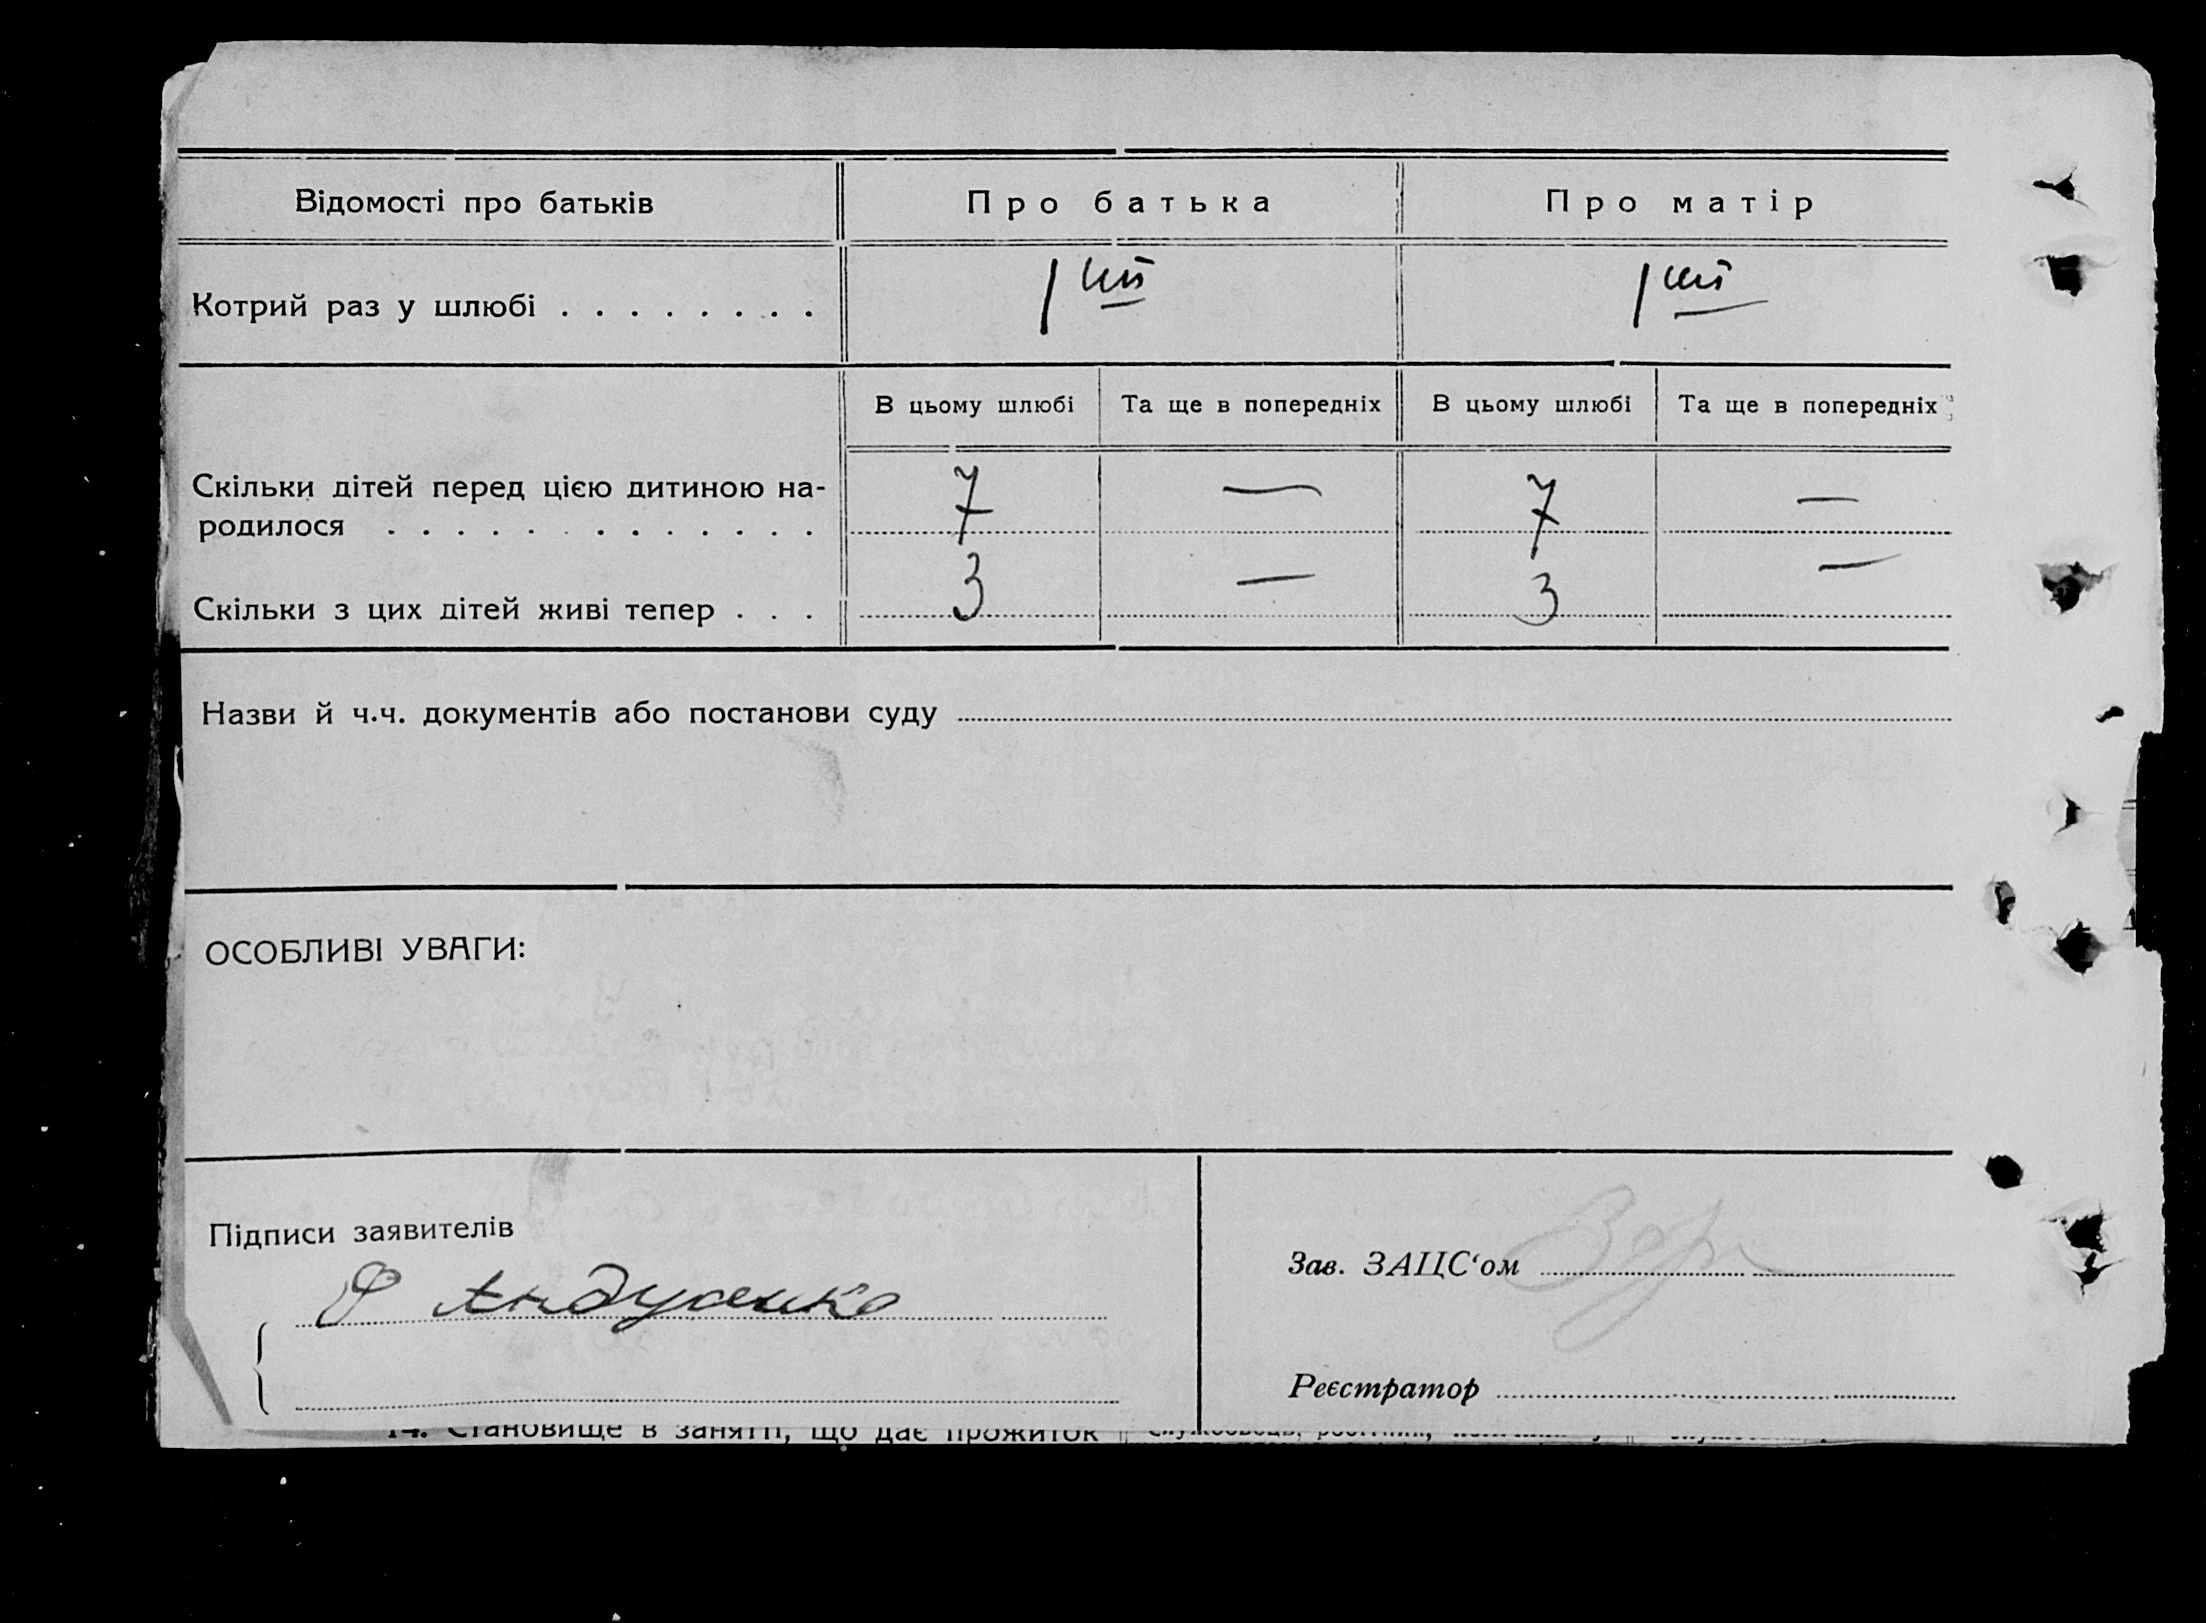 Відомості про батьків Про батька Про матір
Котрий раз у шлюбі . . . . . . . . 1ший 1ший
В цьому шлюбі Та ще в попередніх В цьому шлюбі Та ще в попередніх
Скільки дітей перед цією дитиною на- 7 — 7 —
родилося . . . . . . . . . . . . .
Скільки з цих дітей живі тепер . . . 3 — 3 —
Назви й ч.ч. документів або постанови суду
ОСОБЛИВІ УВАГИ:
Підписи заявителів
Зав. ЗАЦС‘ом
Ф Андусенко
Реєстратор
14. Становище в занятті, що дає прожиток